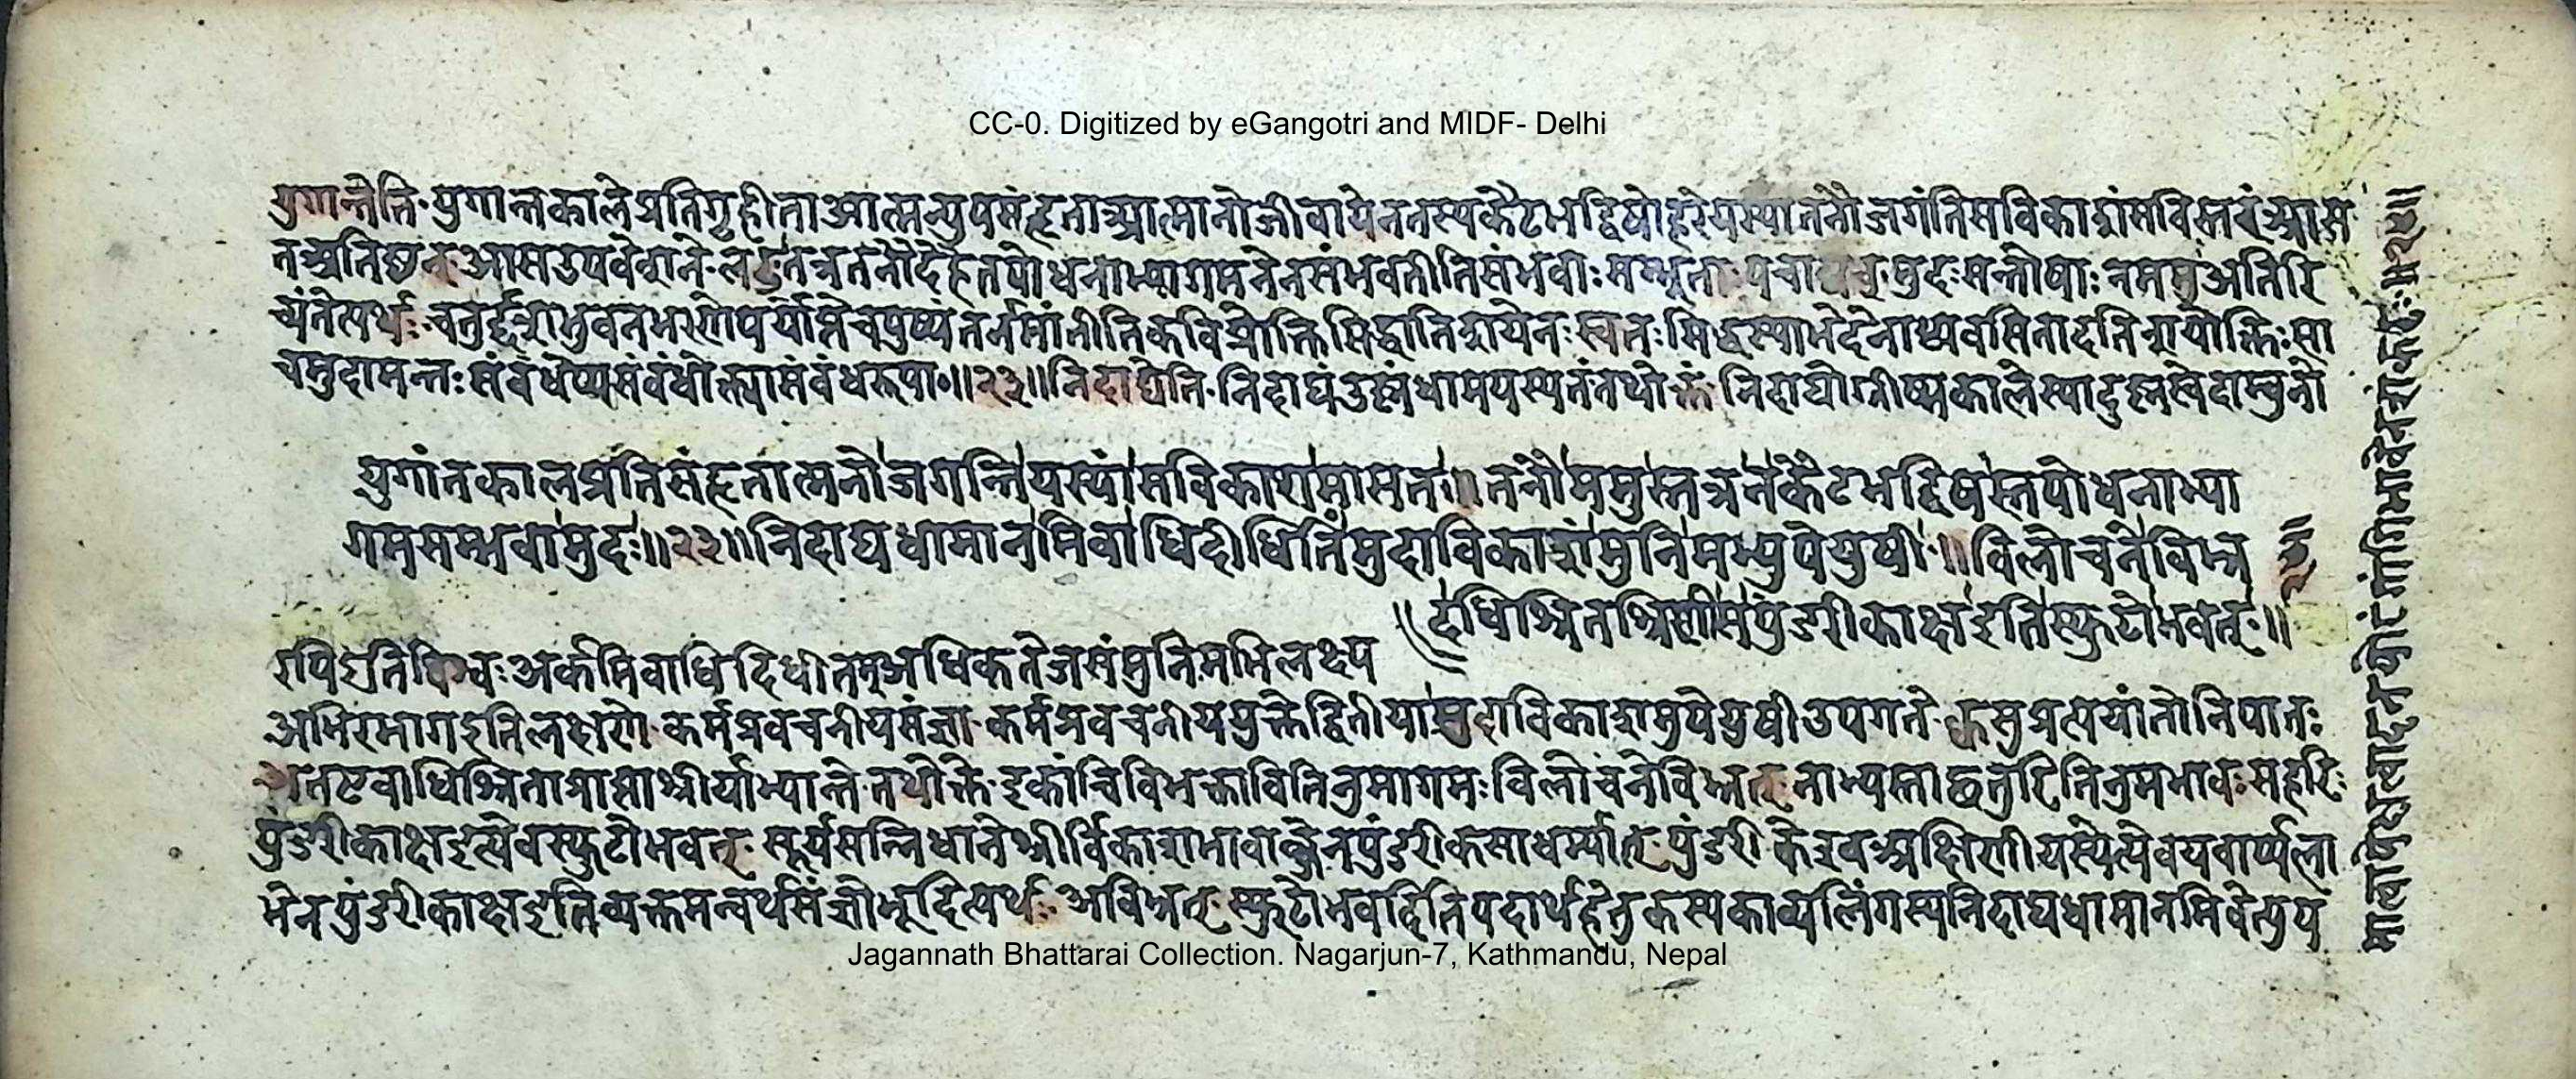 CC-0. Digitized by eGangotri and MIDF- Delhi
युगान्तेति॰ युगान्तकाले प्रतिगृहीता आत्मन्युपसंहृता आत्मानो जीवा येन तस्य कैटभद्विषो हरेर्यस्यां तनौ जगंति सविकाशं सविस्तरं आस
त अतिष्ठन् आस उपवेशने लङ् तत्र तनौ देहे तपोधनाभ्यागमनेन संभवतीति संभवाः सम्भूताः पचाद्यच् मुदः सन्तोषाः न ममुः अतिरि
च्यंते त्यर्थः चतुर्द्दश भुवनभरणे पर्याप्ते वपुष्यं तर्न मांतीति कविप्रौक्ति सिद्धातिशयेन स्वतः सिद्धस्याभेदेनाध्यवसितादतिशयोक्तिः सा
च मुदामन्तः संबंधेप्यसंबंधोक्त्या संबंधरूपा॰॥२३॥ निदाघेति॰ निदाघं उष्णं धाम यस्य तं तथोक्तं निदाघो ग्रीष्मकाले स्यादुष्णस्वेदाम्बुनो
युगांतकालप्रतिसंहृतात्मनो जगन्ति यस्यां सविकाशमासत॥ तनौ ममुस्तत्र न कैटभद्विषस्तपोधनाभ्या
गमसम्भवा मुदः॥२३॥ निदाघधामानमिवाधिदीधितिं मुदा विकाशं मुनिमभ्युपेयुषी॥ विलोचने बिभ्र
दधिश्रितश्रिणी स पुंडरीकाक्ष इति स्फुटोभवत्॥
रपि इति विश्वः अर्कमिवाधिदिधीतम् अधिकतेजसं मुनिमभिलक्ष्य
अभिरभाग इति लक्षणे कर्मप्रवचनीयसंज्ञा कर्मप्रवचनीययुक्ते द्वितीया मुदा विकाशमुपेयुषी उपगते क्वसुप्रत्ययांतो निपातः
अत एवाधिश्रिता प्राप्ता श्रीर्याभ्यां ते तथोक्ते इकोचि विभक्ताविति नुमागमः विलोचने बिभ्रत् नाभ्यस्ताछतुरिति नुमभावः स हरिः
पुंडरीकाक्ष इत्येव स्फुटोभवत् सूर्यसन्निधाने श्रीर्विकाशभावात्तेन पुंडरीकसाधर्म्यात् पुंडरीके इव अक्षिणी यस्येत्येवयवार्थला
भेन पुंडरीकाक्ष इति व्यक्तमन्वर्थसंज्ञोभूदित्यर्थः अबिभ्रत् स्फुटोभवदिति पदार्थहेतुकस्य काव्यलिंगस्य निदाघधामानमिवेत्युप
Jagannath Bhattarai Collection. Nagarjun-7, Kathmandu, Nepal